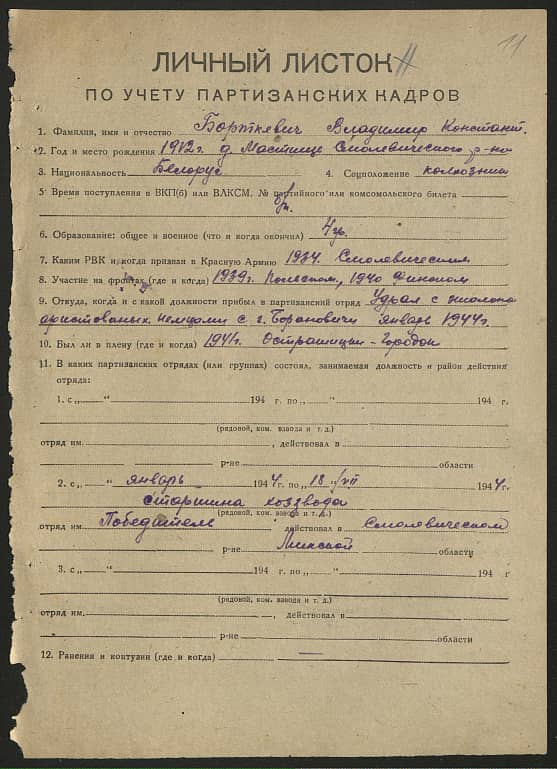 11
ЛИЧНЫЙ ЛИСТОК
ПО УЧЕТУ ПАРТИЗАНСКИХ КАДРОВ
1. Фамилия, имя и отчество Борткевич Владимир Констант.
2. Год и место рождения 1912г. д Мастище Смолевического р-на
3. Национальность Белорус 4. Соцположение колхозник
5 Время поступления в ВКП(б) или ВЛКСМ, № партийного или комсомольского билета
б/п.
6. Образование: общее и военное (что и когда окончил) 4гр.
7. Каким РВК и когда призван в Красную Армию 1934. Смолевическим
8. Участие на фронтах (где и когда) 1939г. Польском, 1940 Финском
9. Откуда, когда и с какой должности прибыл в партизанский отряд Удрал с эшолона
арестованых немцами с г. Барановичи январь 1944г.
10. Был ли в плену (где и когда) 1941г. Острошицки-Городок
11. В каких партизанских отрядах (или группах) состоял, занимаемая должность и район действия
отряда:
1. с „ “ 194 г. по „ “ 194 г.
(рядовой, ком. взвода и т. д.)
отряд им. , действовал в
р-не области
2. с „ “ январь 1944 г. по „18“ VII 1944 г.
старшина хозвзвода
(рядовой, ком. взвода и т. д.)
отряд им. Победителе действовал в Смолевическом
р-не Минской области
3. с „ “ 194 г. по „ “ 194 г
(рядовой, ком. взвода и т. д.)
отряд им. , действовал в
р-не области
12. Ранения и контузии (где и когда) —